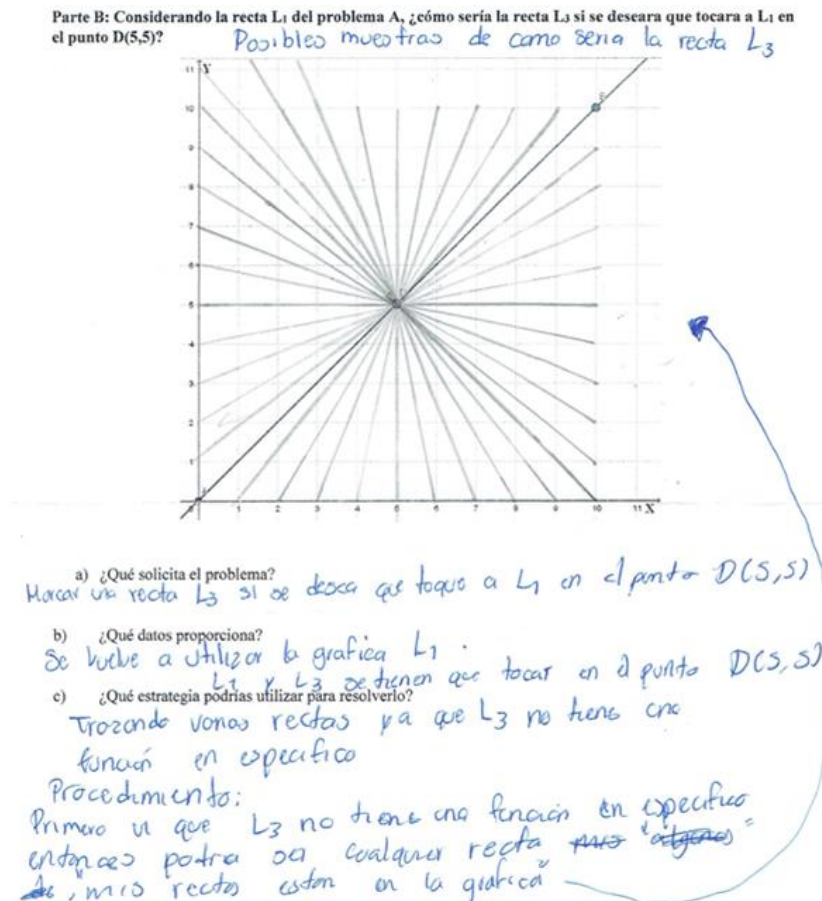 Parte B: Considerando la recta L₁ del problema A, ¿cómo sería la recta L₃ si se deseara que tocara a L₁ en
el punto D(5,5)?
Posibles muestras de como seria la recta L3
11 Y
10
9
8
7
6
5
4
3
2
1
0 1 2 3 4 5 6 7 8 9 10 11 X
a) ¿Qué solicita el problema?
Marcar una recta L3 si se desea que toque a L1 en el punto D(5,5)
b) ¿Qué datos proporciona?
Se vuelve a utilizar la grafica L1.
L1 y L3 se tienen que tocar en el punto D(5,5)
c) ¿Qué estrategia podrías utilizar para resolverlo?
Trozando varias rectas ya que L3 no tiene una
función en especifico
Procedimiento:
Primero vi que L3 no tiene una función en especifico
entonces podra ser cualquier recta
"mis rectas estan en la grafica"